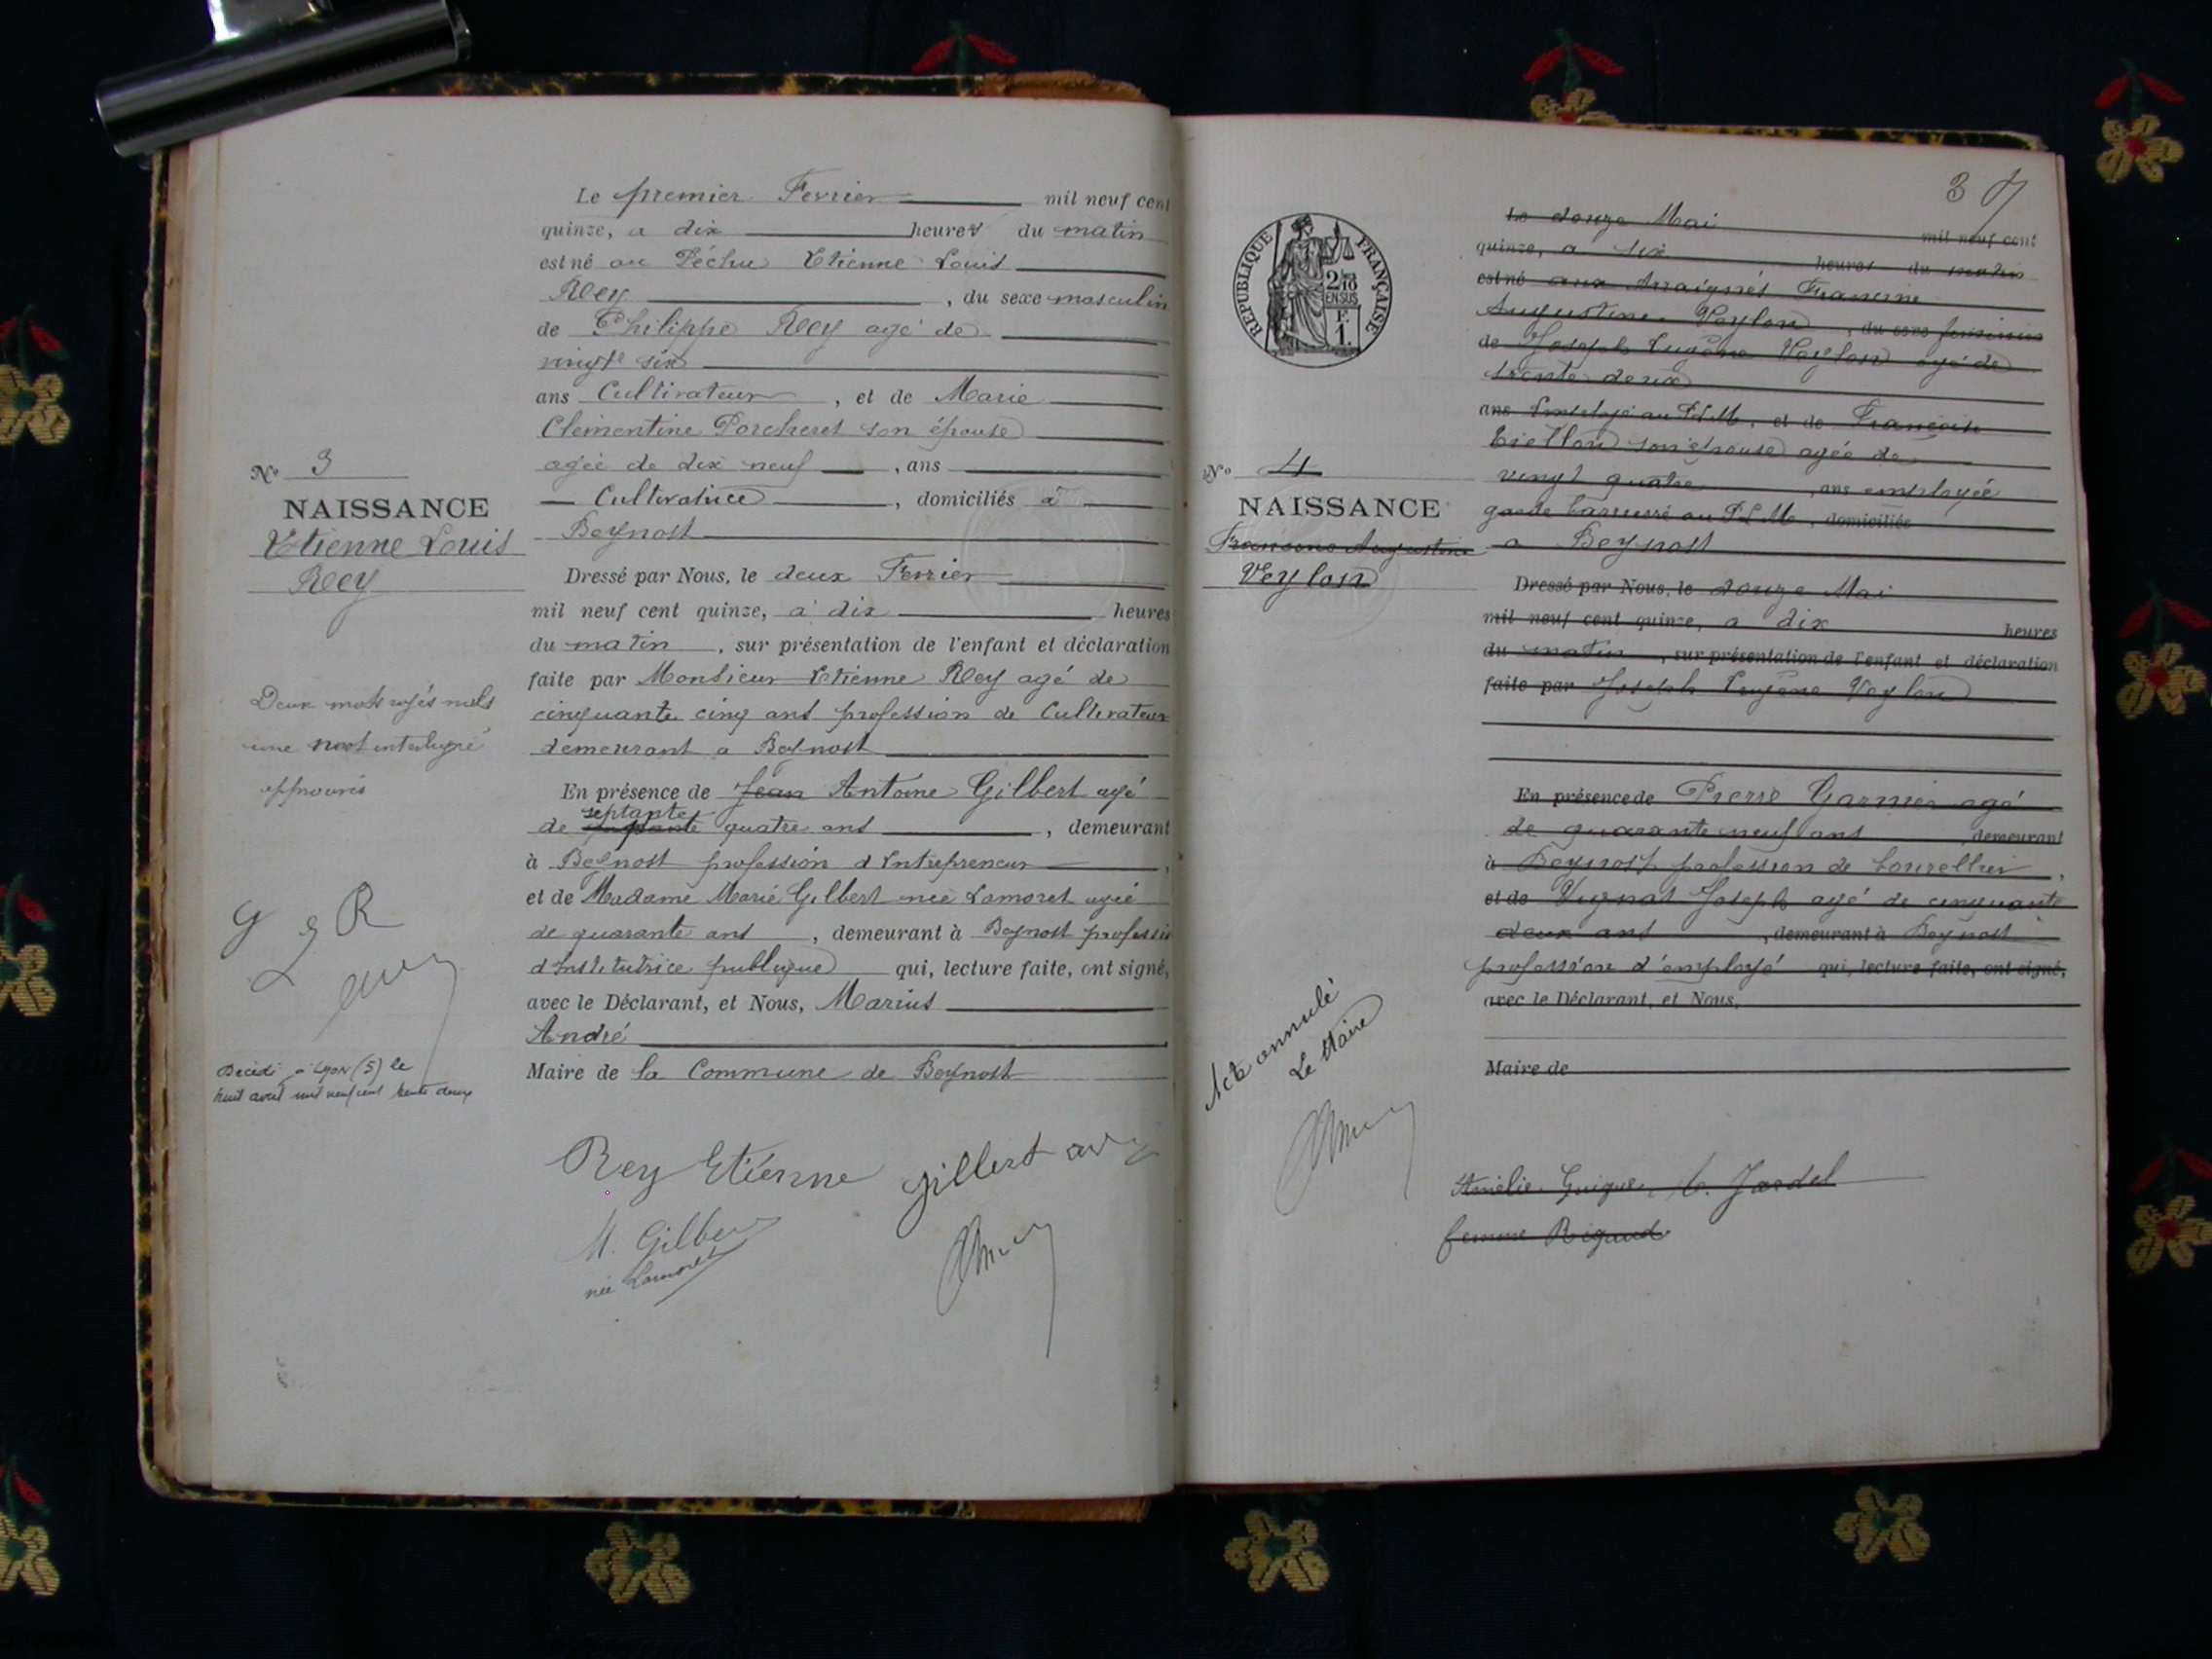 Le premier Fevrier mil neuf cent
quinze, a dix heures du matin
est né au Péchu Etienne Louis
Rey, du sexe masculin
de Philippe Rey agé de
vingt six
ans Cultivateur, et de Marie
Clémentine Porcheret son épouse
agée de dix neuf, ans
Cultivatrice, domiciliés à
Beynost
Dressé par Nous, le deux Fevrier
mil neuf cent quinze, à dix heures
du matin, sur présentation de l'enfant et déclaration
faite par Monsieur Etienne Rey agé de
cinquante cinq ans profession de Cultivateur
demeurant a Beynost
En présence de Jean Antoine Gilbert agé
septante
de quatre ans, demeurant
à Beynost profession d'Entrepreneur,
et de Madame Marie Gilbert née Lamoret agée
de quarante ans, demeurant à Beynost professi
d'Institutrice publique qui, lecture faite, ont signé,
avec le Déclarant, et Nous, Marius
André
Maire de la Commune de Beynost
Rey Etienne Gilbert
M. Gilbert
née Lamoret
N° 3
NAISSANCE
Etienne Louis
Rey
Deux mots rayés nuls
une mot interligné
approuvés
G E R
Décédé à Lyon (5) le
huit avril mil neuf cent trente deux
3
REPUBLIQUE FRANÇAISE
2/10
EN SUS
F.
1.
N° 4
NAISSANCE
Francine Augustine
Veylon
Acte annulé
Le Maire
Le douze Mai mil neuf cent
quinze, a six heures du matin
est né aux Arraignés Francine
Augustine Veylon, du sexe feminin
de Joseph Eugène Veylon agé de
trente deux
ans Employé au P.L.M., et de Françoise
son épouse agée de
vingt quatre, ans employée
garde barrière au P.L.M., domiciliés
a Beynost
Dressé par Nous, le douze Mai
mil neuf cent quinze, a dix heures
du matin, sur présentation de l'enfant et déclaration
faite par Joseph Eugène Veylon
En présence de Pierre Garnier agé
de quarante neuf ans demeurant
à Beynost profession de,
et de Vignat Joseph agé de cinquante
deux ans, demeurant à Beynost
profession d'employé qui, lecture faite, ont signé,
avec le Déclarant, et Nous,
Maire de
Amélie Guigue M. Jardel
femme Rigaud